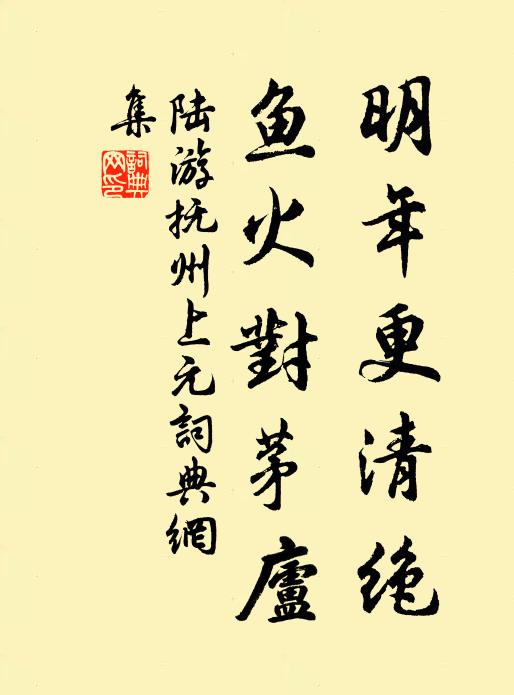 明年更清绝
鱼火對茅廬
陆游抚州上元詞典網
集
詞典網印